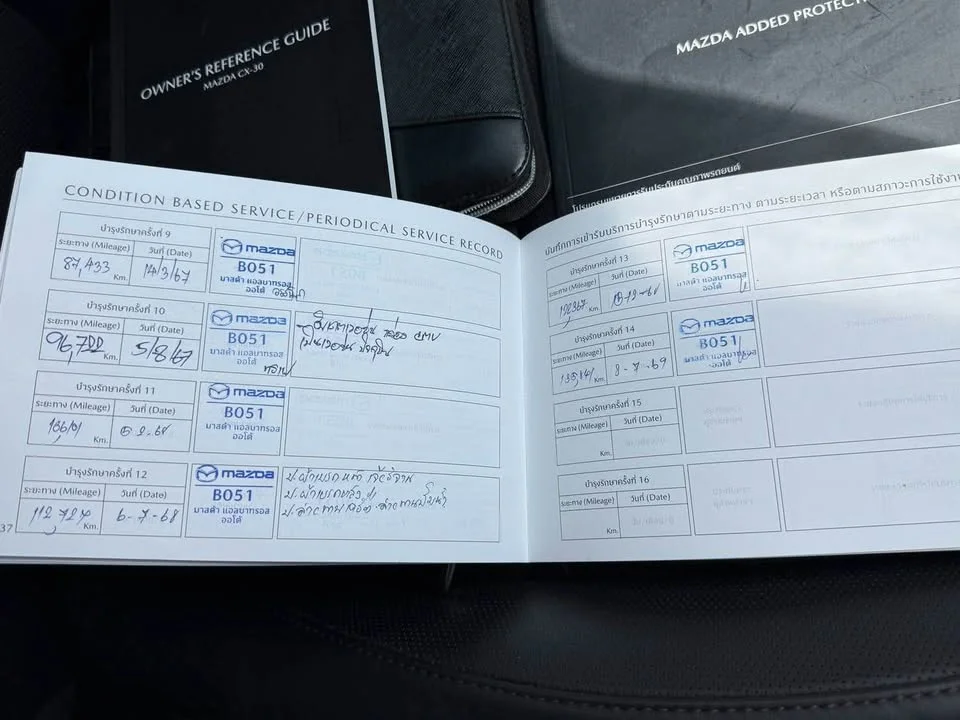 OWNER'S REFERENCE GUIDE
MAZDA CX-30
MAZDA ADDED PROTECTI
โปรแกรมขยายการรับประกันคุณภาพรถยนต์
CONDITION BASED SERVICE/PERIODICAL SERVICE RECORD
บำรุงรักษาครั้งที่ 9
ระยะทาง (Mileage) วันที่ (Date)
87,433 Km. 14/3/67
mazda
B051
มาสด้า แอลบาทรอส
ออโต้
บำรุงรักษาครั้งที่ 10
ระยะทาง (Mileage) วันที่ (Date)
96,700 Km. 5/8/67
mazda
B051
มาสด้า แอลบาทรอส
ออโต้
บำรุงรักษาครั้งที่ 11
ระยะทาง (Mileage) วันที่ (Date)
Km.
mazda
B051
มาสด้า แอลบาทรอส
ออโต้
บำรุงรักษาครั้งที่ 12
ระยะทาง (Mileage) วันที่ (Date)
112,724 Km. 6-7-68
mazda
B051
มาสด้า แอลบาทรอส
ออโต้
37
บันทึกการเข้ารับบริการบำรุงรักษาตามระยะทาง ตามระยะเวลา หรือตามสภาวะการใช้งาน
บำรุงรักษาครั้งที่ 13
ระยะทาง (Mileage) วันที่ (Date)
Km.
mazda
B051
มาสด้า แอลบาทรอส
ออโต้
บำรุงรักษาครั้งที่ 14
ระยะทาง (Mileage) วันที่ (Date)
Km. 8-7-69
mazda
B051
มาสด้า แอลบาทรอส
ออโต้
บำรุงรักษาครั้งที่ 15
ระยะทาง (Mileage) วันที่ (Date)
Km.
บำรุงรักษาครั้งที่ 16
ระยะทาง (Mileage) วันที่ (Date)
Km.